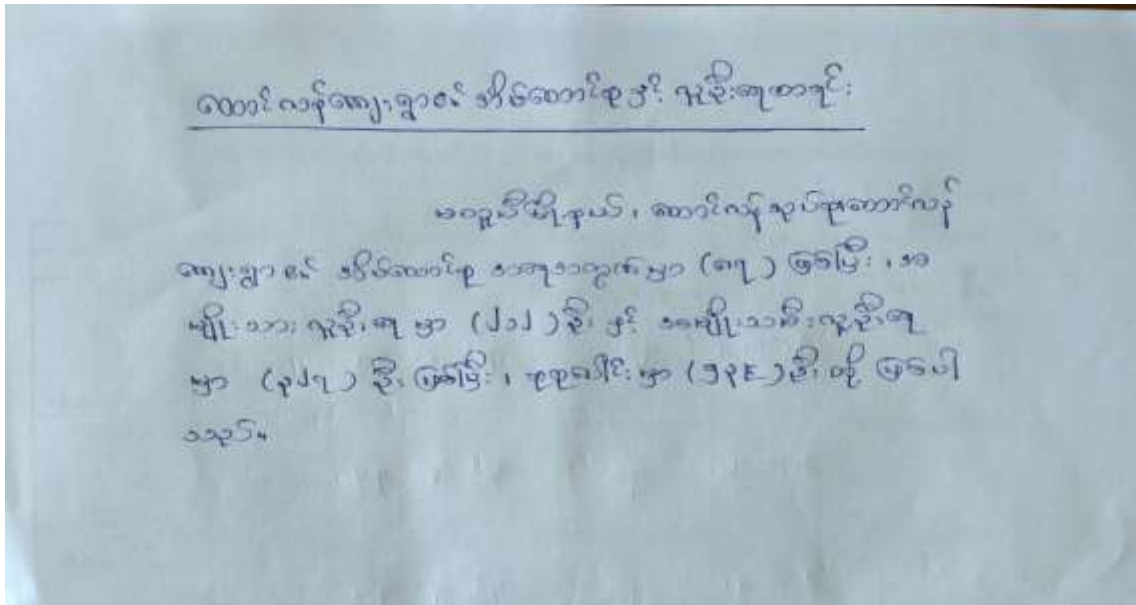 ထောင်လန်ကျေးရွာ၏ အိမ်ထောင်စု နှင့် လူဦးရေစာရင်း
မတူပီမြို့နယ်၊ ထောင်လန်အုပ်စု၊ ထောင်လန်
ကျေးရွာ ၏ အိမ်ထောင်စု အရေအတွက်မှာ (၈၇) ဖြစ်ပြီး ၊ အ
မျိုးသား လူဦးရေ မှာ (၂၁၂) ဦး နှင့် အမျိုးသမီးလူဦးရေ
မှာ (၃၂၇) ဦး ဖြစ်ပြီး ၊ စုစုပေါင်းမှာ (၅၃၉) ဦး တို့ ဖြစ်ပါ
သည်။